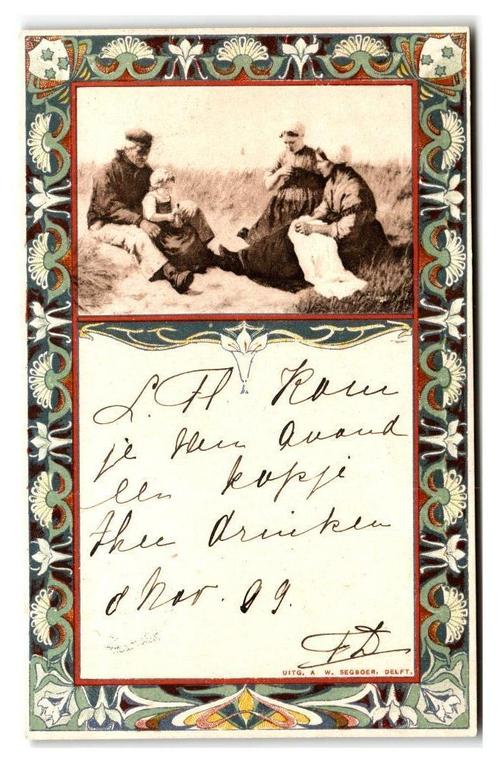 L. H. Kom
je van avond
een kopje
thee drinken
8 Nov. 09.
FD
UITG. A. W. SEGBOER. DELFT.